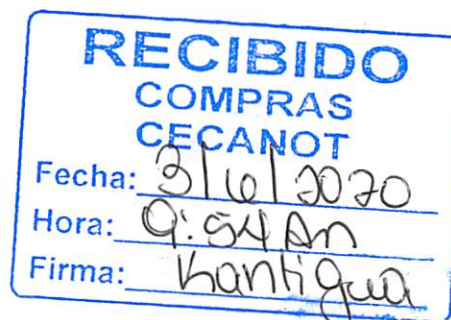 RECIBIDO
COMPRAS
CECANOT
Fecha: 3/6/2020
Hora: 9:54 Am
Firma: Kantigua